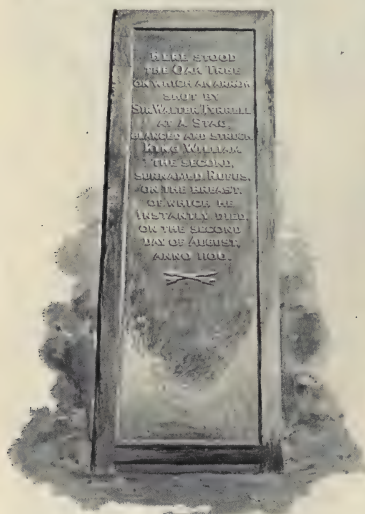 HERE STOOD
THE OAK TREE
ON WHICH AN ARROW
SHOT BY
SIR WALTER TYRRELL
AT A STAG,
GLANCED AND STRUCK
KING WILLIAM
THE SECOND,
SURNAMED RUFUS,
ON THE BREAST,
OF WHICH HE
INSTANTLY DIED,
ON THE SECOND
DAY OF AUGUST,
ANNO 1100.